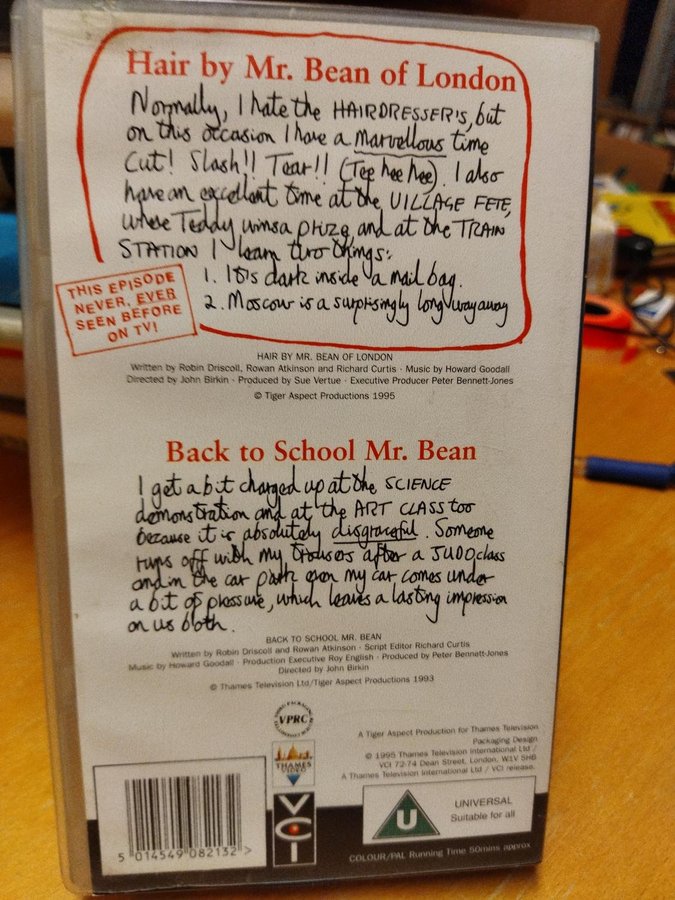 Hair by Mr. Bean of London
Normally, I hate the HAIRDRESSER'S, but
on this occasion I have a marvellous time
Cut! Slash!! Tear!! (Tee hee hee). I also
have an excellent time at the VILLAGE FETE,
where Teddy wins a prize, and at the TRAIN
STATION I learn two things:
1. It is dark inside a mail bag.
2. Moscow is a surprisingly long way away
THIS EPISODE
NEVER, EVER
SEEN BEFORE
ON TV!
HAIR BY MR. BEAN OF LONDON
Written by Robin Driscoll, Rowan Atkinson and Richard Curtis · Music by Howard Goodall
Directed by John Birkin · Produced by Sue Vertue · Executive Producer Peter Bennett-Jones
© Tiger Aspect Productions 1995
Back to School Mr. Bean
I get a bit charged up at the SCIENCE
demonstration and at the ART CLASS too
because it is absolutely disgraceful. Someone
runs off with my trousers after a JUDO class
and in the car park even my car comes under
a bit of pressure, which leaves a lasting impression
on us both.
BACK TO SCHOOL MR. BEAN
Written by Robin Driscoll and Rowan Atkinson · Script Editor Richard Curtis
Music by Howard Goodall · Production Executive Roy English · Produced by Peter Bennett-Jones
Directed by John Birkin
© Thames Television Ltd/Tiger Aspect Productions 1993
VPRC
A Tiger Aspect Production for Thames Television
Packaging Design
© 1995 Thames Television International Ltd /
VCI 72-74 Dean Street, London, W1V 5HB
A Thames Television International Ltd / VCI release.
THAMES
VIDEO
VCI
5 014549 082132 >
U
UNIVERSAL
Suitable for all
COLOUR/PAL Running Time 50mins approx